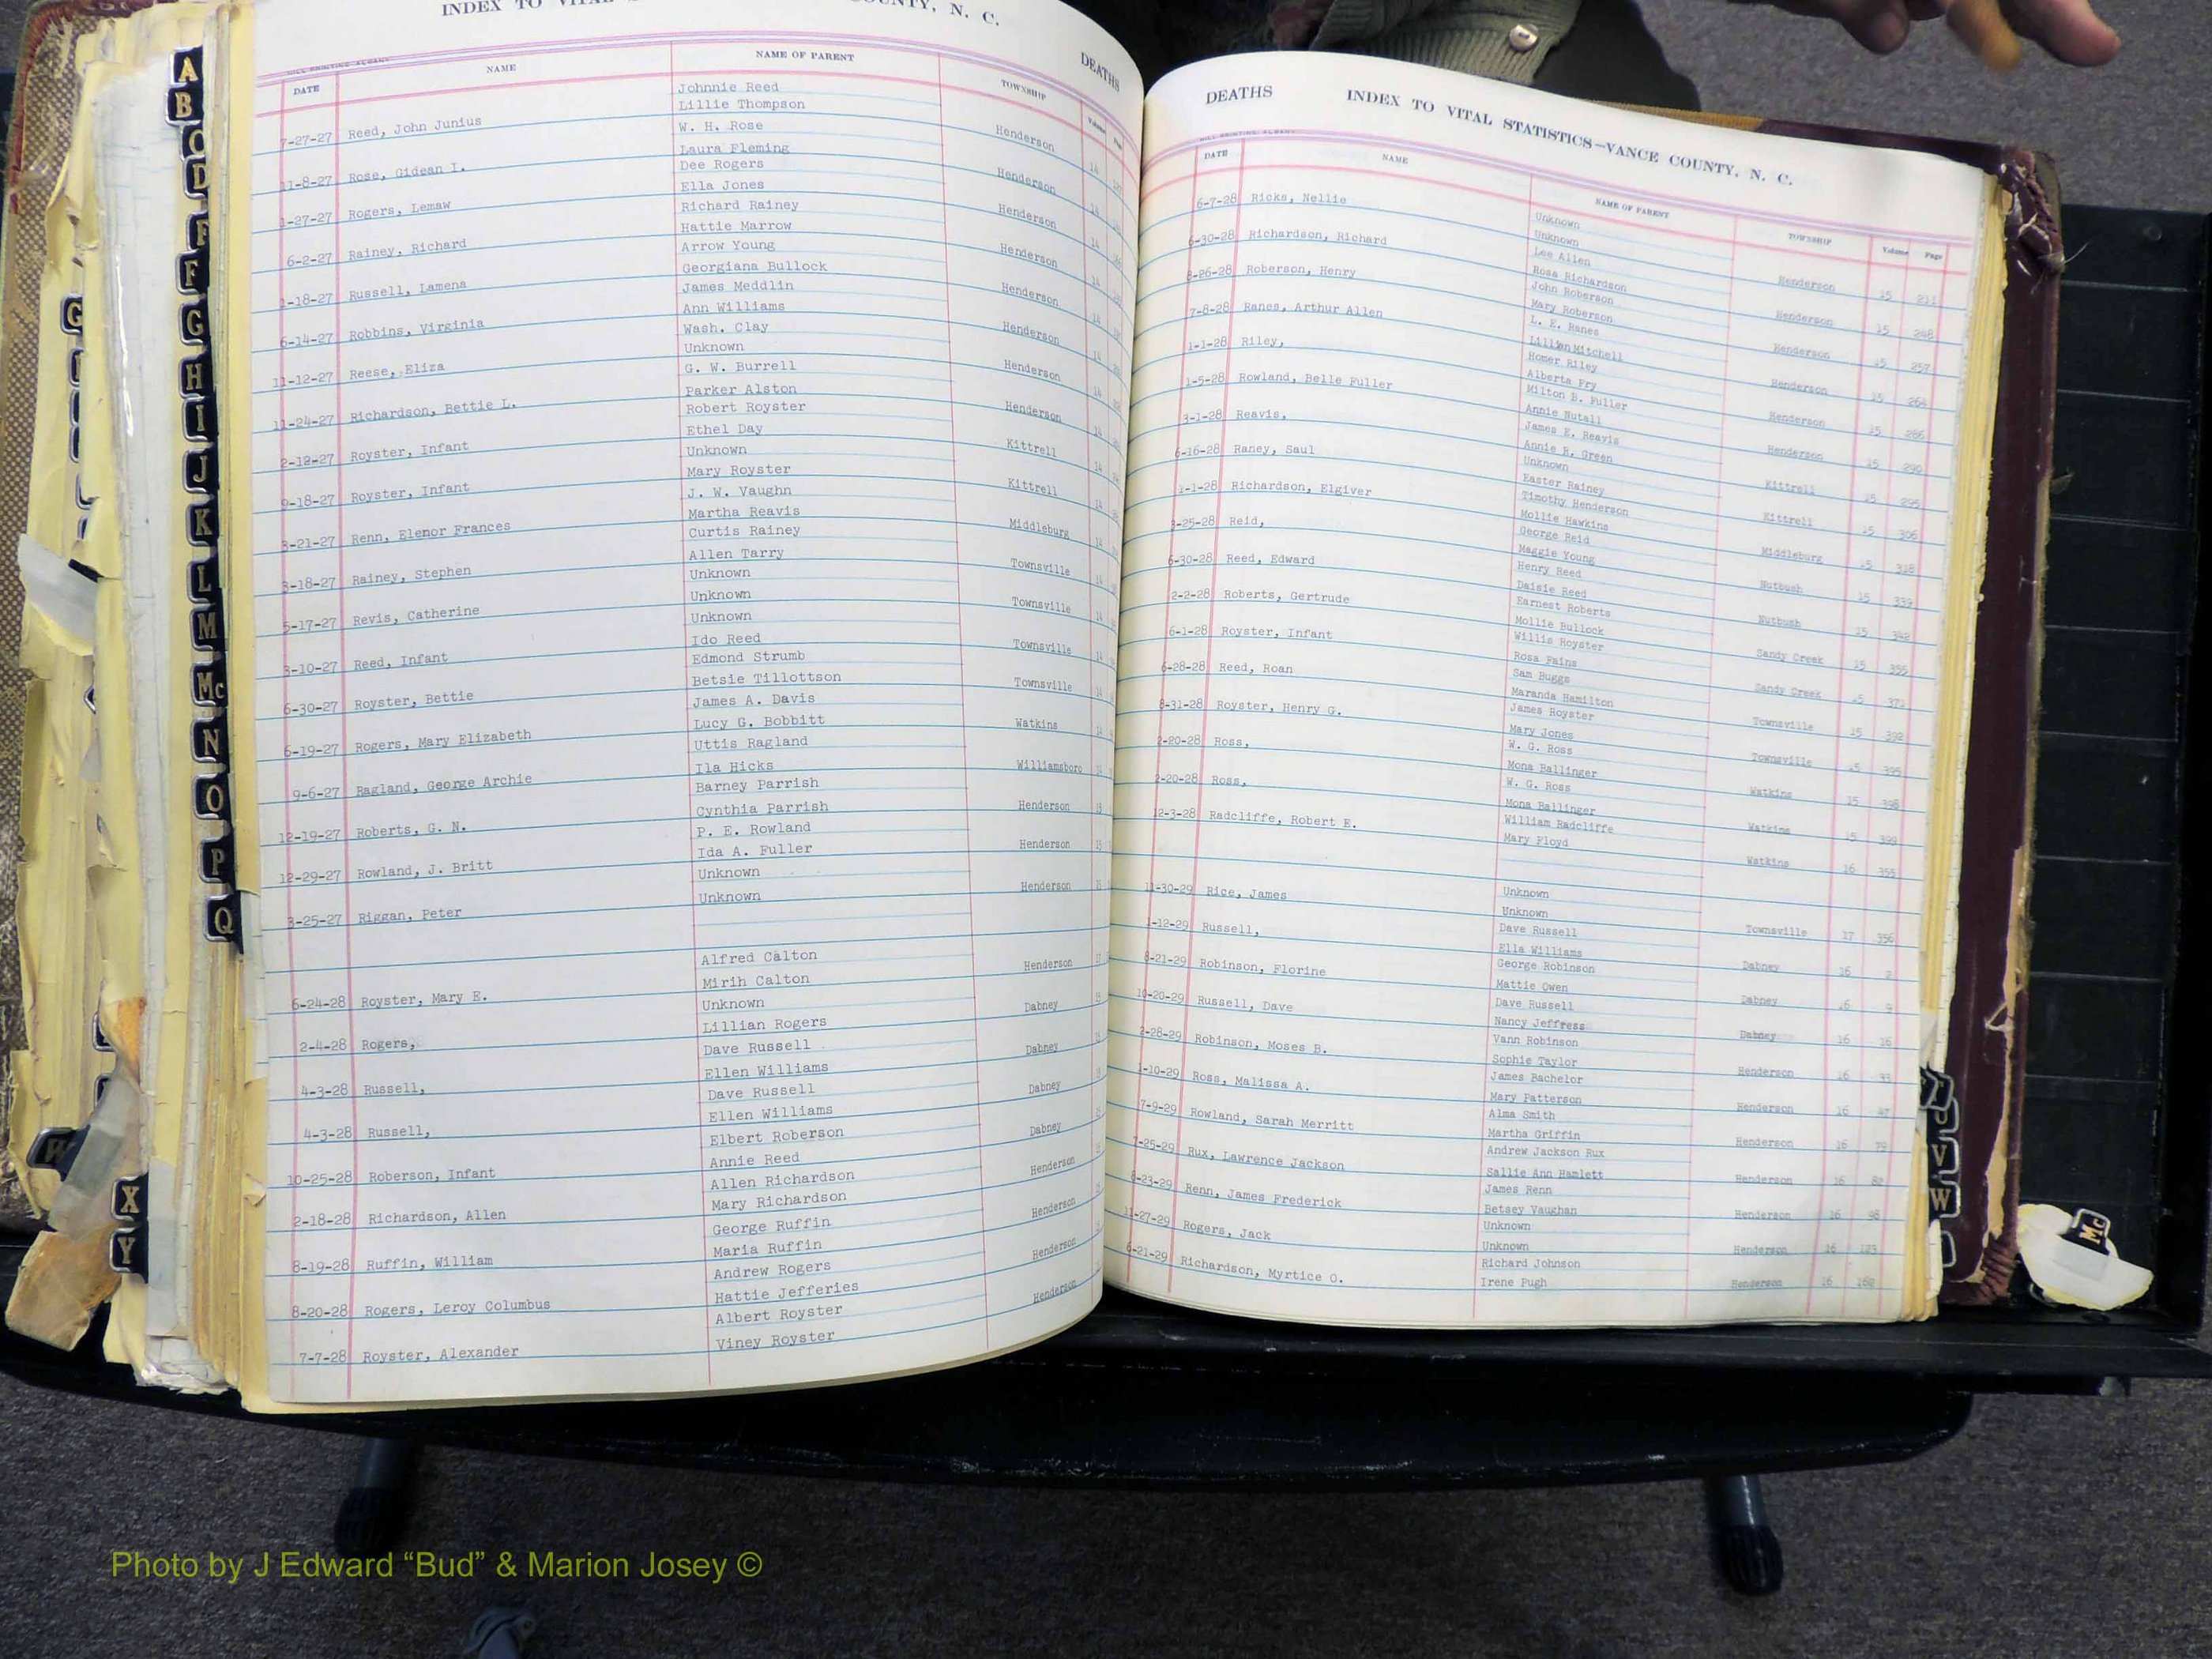 INDEX TO VITAL COUNTY, N. C.
DEATHS
DATE NAME NAME OF PARENT TOWNSHIP Volume
Johnnie Reed
7-27-27 Reed, John Junius Lillie Thompson Henderson 14
W. H. Rose
11-8-27 Rose, Gidean I. Laura Fleming Henderson 14
Dee Rogers
1-27-27 Rogers, Lemaw Ella Jones Henderson 14
Richard Rainey
6-2-27 Rainey, Richard Hattie Marrow Henderson 14
Arrow Young
1-18-27 Russell, Lamena Georgiana Bullock Henderson 14
James Meddlin
6-14-27 Robbins, Virginia Ann Williams Henderson 14
Wash. Clay
11-12-27 Reese, Eliza Unknown Henderson 14
G. W. Burrell
11-24-27 Richardson, Bettie L. Parker Alston Henderson 14
Robert Royster
2-12-27 Royster, Infant Ethel Day Kittrell 14
Unknown
9-18-27 Royster, Infant Mary Royster Kittrell 14
J. W. Vaughn
3-21-27 Renn, Elenor Frances Martha Reavis Middleburg 14
Curtis Rainey
3-18-27 Rainey, Stephen Allen Tarry Townsville 14
Unknown
5-17-27 Revis, Catherine Unknown Townsville 14
Unknown
3-10-27 Reed, Infant Ido Reed Townsville 14
Edmond Strumb
6-30-27 Royster, Bettie Betsie Tillottson Townsville 14
James A. Davis
6-19-27 Rogers, Mary Elizabeth Lucy G. Bobbitt Watkins 14
Uttis Ragland
9-6-27 Ragland, George Archie Ila Hicks Williamsboro 14
Barney Parrish
12-19-27 Roberts, G. N. Cynthia Parrish Henderson 15
P. E. Rowland
12-29-27 Rowland, J. Britt Ida A. Fuller Henderson 15
Unknown
3-25-27 Riggan, Peter Unknown Henderson 15
Alfred Calton
6-24-28 Royster, Mary E. Mirih Calton Henderson 17
Unknown
2-4-28 Rogers, Lillian Rogers Dabney 15
Dave Russell
4-3-28 Russell, Ellen Williams Dabney 15
Dave Russell
4-3-28 Russell, Ellen Williams Dabney 15
Elbert Roberson
10-25-28 Roberson, Infant Annie Reed Dabney 15
Allen Richardson
2-18-28 Richardson, Allen Mary Richardson Henderson 15
George Ruffin
8-19-28 Ruffin, William Maria Ruffin Henderson 15
Andrew Rogers
8-20-28 Rogers, Leroy Columbus Hattie Jefferies Henderson
Albert Royster
7-7-28 Royster, Alexander Viney Royster Henderson
DEATHS INDEX TO VITAL STATISTICS—VANCE COUNTY, N. C.
DATE NAME NAME OF PARENT TOWNSHIP Volume Page
Unknown
6-7-28 Ricks, Nellie Unknown Henderson 15 211
Lee Allen
6-30-28 Richardson, Richard Rosa Richardson Henderson 15 248
John Roberson
8-26-28 Roberson, Henry Mary Roberson Henderson 15 257
L. E. Ranes
7-8-28 Ranes, Arthur Allen Lillian Mitchell Henderson 15 264
Homer Riley
1-1-28 Riley, Alberta Fry Henderson 15 286
Milton B. Fuller
1-5-28 Rowland, Belle Fuller Annie Nutall Henderson 15 290
James E. Reavis
3-1-28 Reavis, Annie R. Green Kittrell 15 295
Unknown
6-16-28 Raney, Saul Easter Rainey Kittrell 15 306
Timothy Henderson
1-1-28 Richardson, Elgiver Mollie Hawkins Middleburg 15 318
George Reid
3-25-28 Reid, Maggie Young Nutbush 15 339
Henry Reed
6-30-28 Reed, Edward Daisie Reed Nutbush 15 342
Earnest Roberts
2-2-28 Roberts, Gertrude Mollie Bullock Sandy Creek 15 355
Willis Royster
6-1-28 Royster, Infant Rosa Fains Sandy Creek 15
Sam Buggs
6-28-28 Reed, Roan Maranda Hamilton Townsville 15 392
James Royster
8-31-28 Royster, Henry G. Mary Jones Townsville 15 395
W. G. Ross
2-20-28 Ross, Mona Ballinger Watkins 15 398
W. G. Ross
2-20-28 Ross, Mona Ballinger Watkins 15 399
William Radcliffe
12-3-28 Radcliffe, Robert E. Mary Floyd Watkins 16 355
Unknown
11-30-29 Rice, James Unknown Townsville 17 356
Dave Russell
1-12-29 Russell, Ella Williams Dabney 16 2
George Robinson
8-21-29 Robinson, Florine Mattie Owen Dabney 16 9
Dave Russell
10-20-29 Russell, Dave Nancy Jeffress Dabney 16 16
Vann Robinson
2-28-29 Robinson, Moses B. Sophie Taylor Henderson 16 33
James Bachelor
1-10-29 Ross, Malissa A. Mary Patterson Henderson 16 47
Alma Smith
7-9-29 Rowland, Sarah Merritt Martha Griffin Henderson 16 79
Andrew Jackson Rux
7-25-29 Rux, Lawrence Jackson Sallie Ann Hamlett Henderson 16 82
James Renn
8-23-29 Renn, James Frederick Betsey Vaughan Henderson 16 98
Unknown
11-27-29 Rogers, Jack Unknown Henderson 16 123
Richard Johnson
6-21-29 Richardson, Myrtice O. Irene Pugh Henderson 16 162
A
B
C
D
F
F
G
G
H
I
J
K
L
M
Mc
N
O
P
Q
W
X
Y
V
W
Mc
Photo by J Edward “Bud” & Marion Josey ©